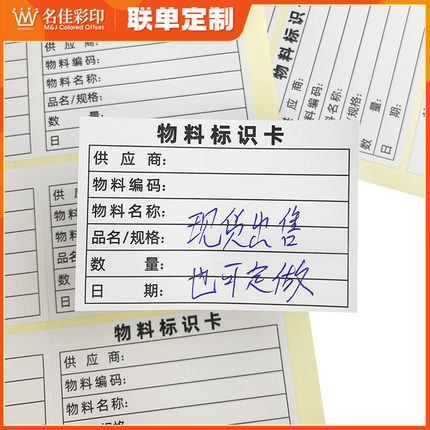 名佳彩印
M&J Colored Offset
联单定制
物料编码:
物料名称:
品名/规格:
数 量:
日 期:
物料标识卡
供 应 商:
物料编码:
物料名称:
品名/规格:
数 量:
日 期:
物料标识卡
供 应 商:
物料编码:
物料名称:
品名/规格: 现货出售
数 量:
日 期: 也可定做
物料标识卡
供 应 商:
物料编码:
物料名称: